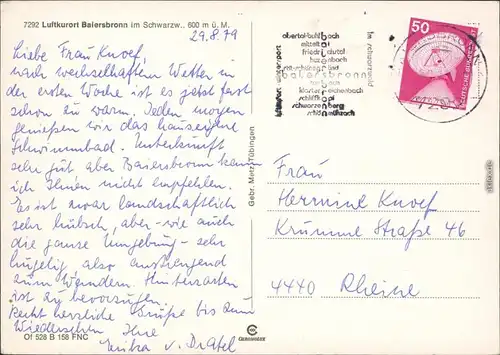 7292 Luftkurort Baiersbronn im Schwarzw., 600 m ü. M.
29.8.79
Liebe Frau Knoef,
nach wechselhaftem Wetter in
der ersten Woche ist es jetzt fast
schon zu warm. Jeden Morgen
genießen wir das hauseigene
Schwimmbad. Unterkunft
sehr gut aber Baiersbronn kann
ich Ihnen nicht empfehlen.
Es ist zwar landschaftlich
sehr hübsch, aber - wie auch
die ganze Umgebung - sehr
hügelig also anstrengend
zum Wandern. Hinterzarten
ist zu bevorzugen.
Recht herzliche Grüße bis zum
Wiedersehen Ihre
Erika v.
Of 528 B 158 FNC
Gebr. Metz, Tübingen
obertal-buhlbach
mitteltal
friedrichstal
huzenbach
baiersbronn
klosterreichenbach
schwarzenberg
schönmünzach
im schwarzwald
50
DEUTSCHE BUNDESPOST
Frau
Hermine Knoef
Krumme Straße 46
4440 Rheine